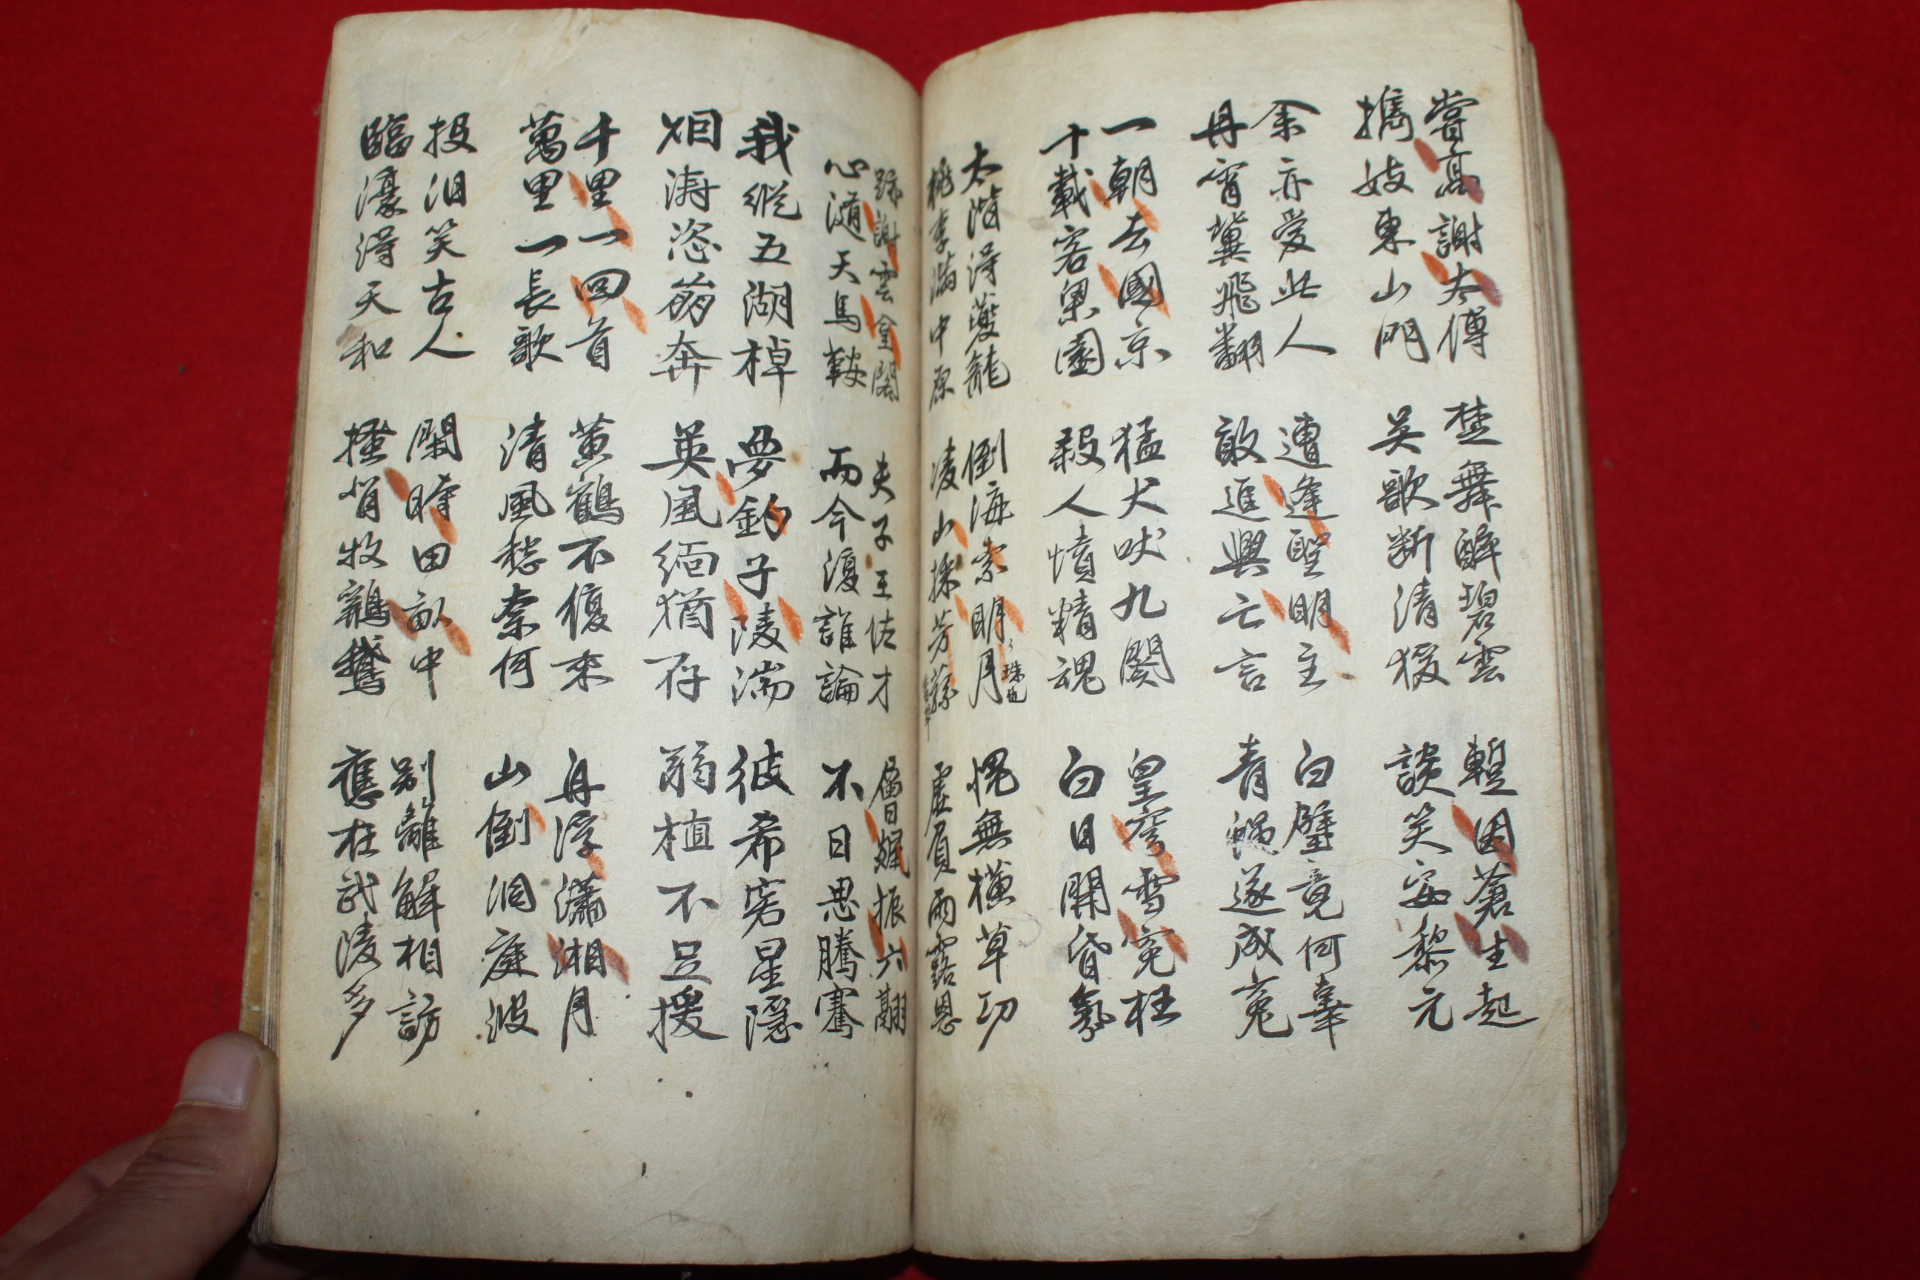 嘗高謝太傅 楚舞醉碧雲 暫因蒼生起
擕妓東山門 吳歌斷清猿 談笑安黎元
余亦愛此人 遭逢聖明主 白璧竟何辜
丹霄冀飛翻 敢進興亡言 青蠅遂成冤
一朝去國京 猛犬吠九関 皇穹雪冤枉
十載客梁園 殺人憤精魂 白日開昏氛
太階得夔龍 倒海索明月 珠也 愧無橫草功
桃李滿中原 凌山採芳蓀 虛負雨露恩
跡謝雲臺閣 夫子王佐才 層飈振六翮
心隨天馬鞍 而今復誰論 不日思騰騫
我縱五湖棹 夢釣子陵湍 彼希客星隱
烟濤恣崩奔 英風緬猶存 弱植不足援
千里一回首 黃鶴不復來 舟浮瀟湘月
萬里一長歌 清風愁奈何 山倒洞庭波
投汨笑古人 閑時田畝中 別離解相訪
臨濠得天和 搔背牧鷄鵝 應在武陵多